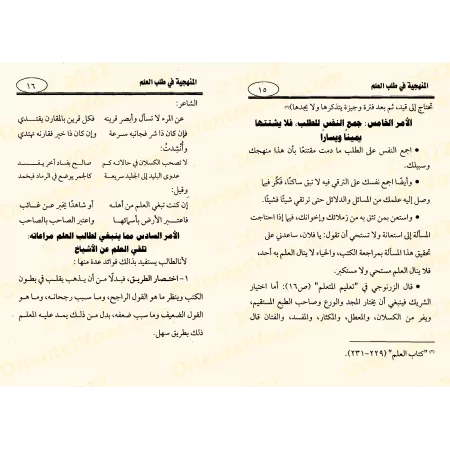 المنهجية في طلب العلم
١٥
تحتاج إلى قيد، ثم بعد فترة وجيزة يتذكرها ولا يجدها)(٣)
الأمر الخامس: جمع النفس للطلب، فلا يشتتها
يمينًا ويسارًا
• اجمع النفس على الطلب ما دمت مقتنعًا بأن هذا منهجك
وسبيلك.
• وأيضًا اجمع نفسك على الترقي فيه لا تبق ساكنًا، فكَّر فيما
وصل إليه علمك من المسائل والدلائل حتى ترتقي شيئًا فشيئًا.
• واستعن بمن تثق به من زملائك وإخوانك، فيما إذا احتاجت
المسألة إلى استعانة ولا تستحي أن تقول: يا فلان، ساعدني على
تحقيق هذا المسألة بمراجعة الكتب، والحياء لا ينال العلم به أحد،
فلا ينال العلم مستحي ولا مستكبر.
• قال الزرنوجي في "تعليم المتعلم" (ص١٦): أما اختيار
الشريك فينبغي أن يختار المجد والورع وصاحب الطبع المستقيم،
ويفر من الكسلان، والمعطل، والمكثار، والمفسد، والفتان قال
(٣) "كتاب العلم" (٢٢٩-٢٣١).
المنهجية في طلب العلم
١٦
الشاعر:
عن المرء لا تسأل وأبصر قرينه فكل قرين بالمقارن يقتدي
فإن كان ذا شر فجانبه سرعة وإن كان ذا خير فقارنه تهتدي
وأُنشِدتُ:
لا تصحب الكسلان في حالاته كم صالح بفساد آخر يفسد
عدوى البليد إلى الجليد سريعة كالجمر يوضع في الرماد فيخمد
وقيل:
إن كنت تبغي العلم من أهله أو شاهدًا يخبر عن غائب
فاعتبر الأرض بأسمائها واعتبر الصاحب بالصاحب
الأمر السادس مما ينبغي لطالب العلم مراعاته:
تلقي العلم عن الأشياخ
لأنالطالب يستفيد بذلك فوائد عدة منها:
١- اختصار الطريق، فبدلًا من أن يذهب يقلب في بطون
الكتب وينظر ما هو القول الراجح، وما سبب رجحانه، وما هو
القول الضعيف وما سبب ضعفه، بدل من ذلك يمد عليه المعلم
ذلك بطريق سهل.